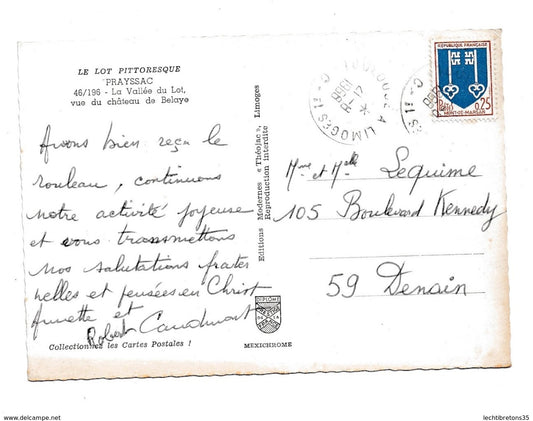 LE LOT PITTORESQUE
PRAYSSAC
46/196 - La Vallée du Lot,
vue du château de Belaye
Avons bien reçu le
rouleau, continuons
notre activité joyeuse
et vous transmettons
nos salutations frater
nelles et pensées en Christ
Annette et
Robert
Collectionnez les Cartes Postales !
Editions Modernes « Théojac », Limoges
Reproduction interdite
MEXICHROME
TOULOUSE A LIMOGES
REPUBLIQUE FRANÇAISE
0,25
MONT-DE-MARSAN
Mme et Melle Lequime
105 Boulevard Kennedy
59 Denain
www.delcampe.net
lechtibretons35